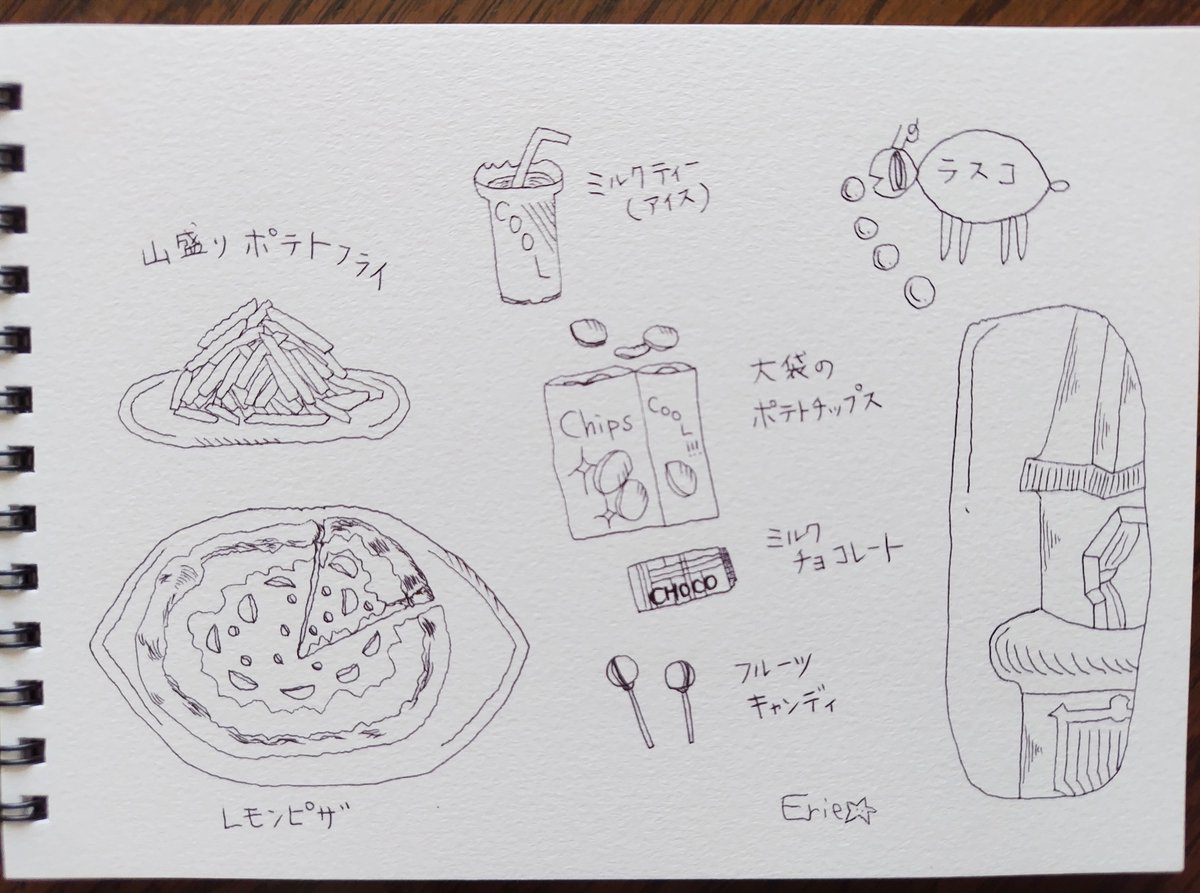 山盛りポテトフライ
COOL
ミルクティー
(アイス)
ラスコ
Chips
COOL!!!
大袋の
ポテトチップス
CHOCO
ミルク
チョコレート
フルーツ
キャンディ
レモンピザ
Erie☆